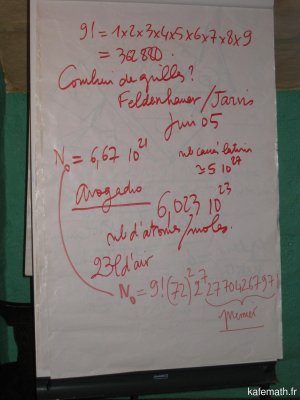 9! = 1x2x3x4x5x6x7x8x9
= 362880.
Combien de grilles?
Feldenhauer/Jarvis
Juin 05
N₀ = 6,67 10²¹
nb carrés latins
≃ 5 10²⁷
Avogadro
6,023 10²³
nb d'atomes/moles.
23l d'air
N₀ = 9! (72)² 2⁷ 27704267971
premier
kafemath.fr